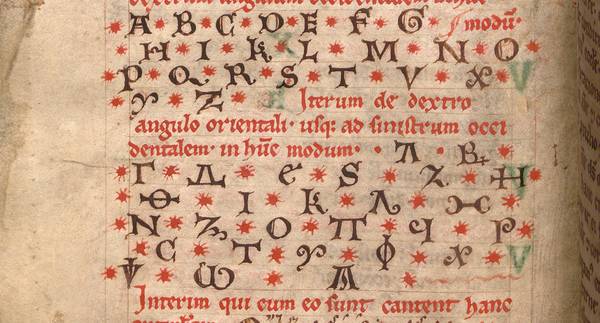 A B C D E F G modū·
H I K L M N O
P Q R S T V X
Y Z Iterum de dextro
angulo orientali· usq; ad sinistrum occi
dentalem· in hūc modum· Λ B
Γ Δ Є S Z H
Θ I K Λ
N Z O Π Ϥ P
C T Y Φ X
Ѱ Ѡ A
Interim qui eum eo sunt cantent hanc